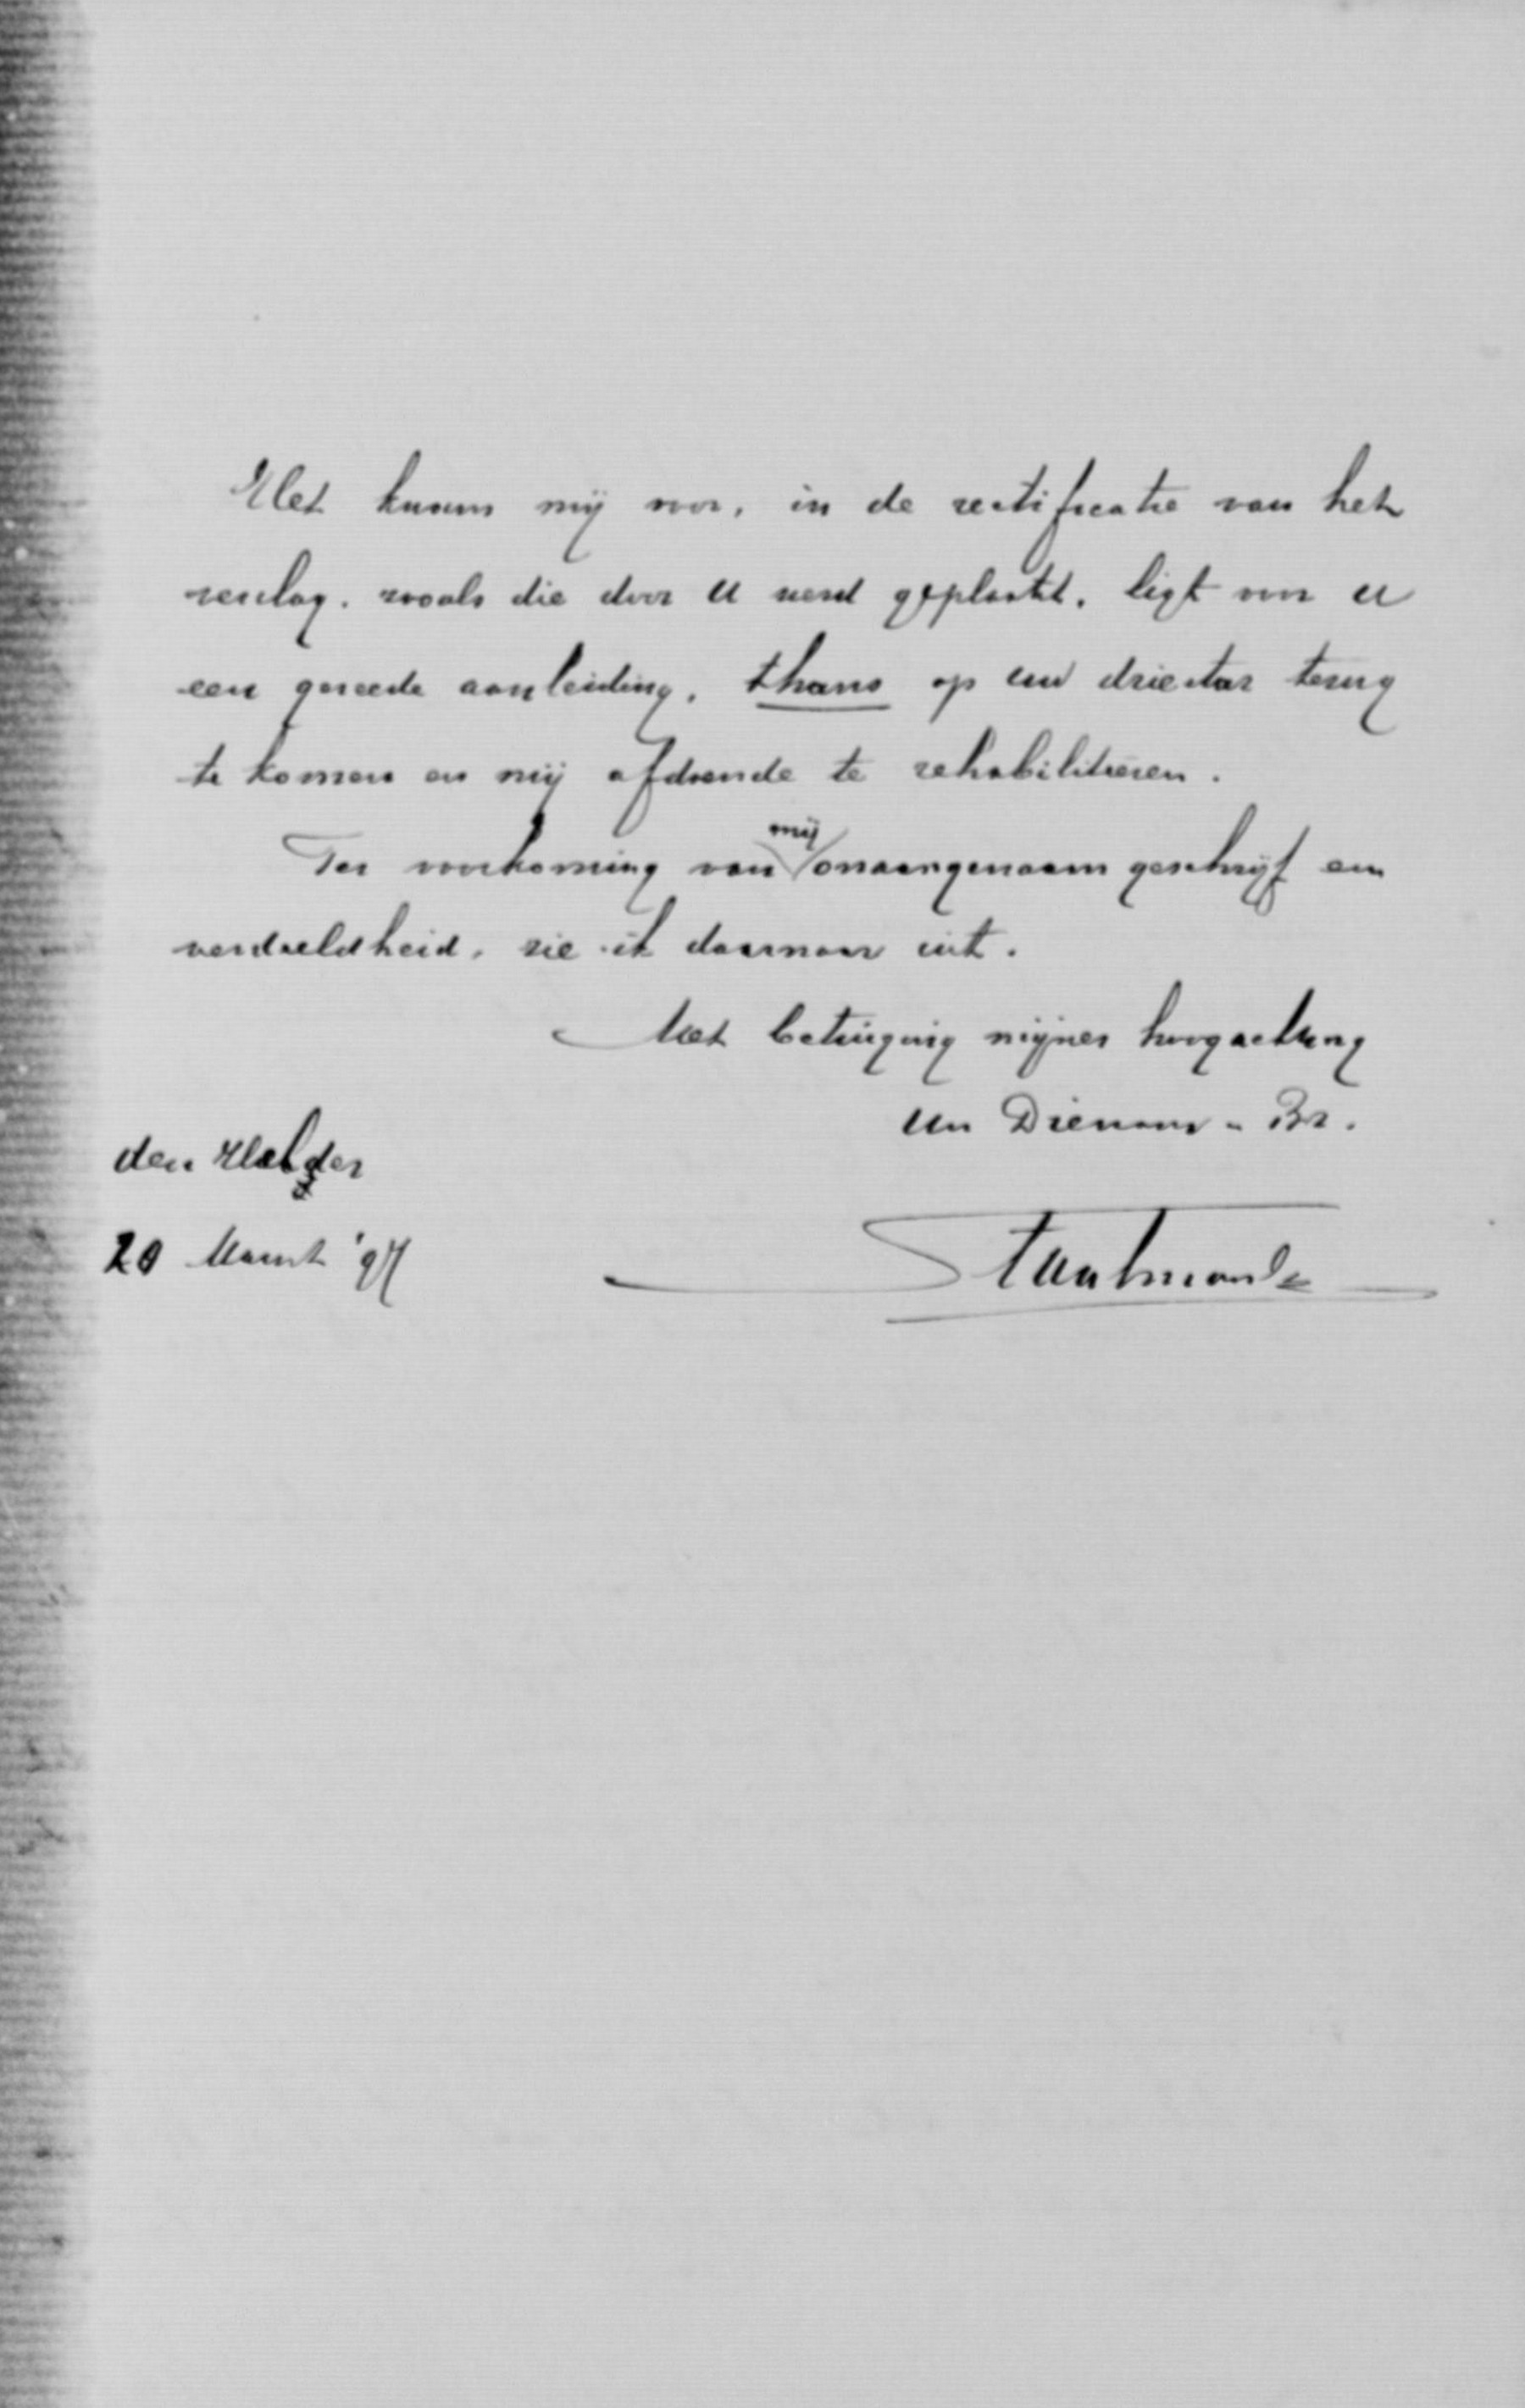 Het kwam mij voor, in de rectificatie van het
verslag, zooals die door U werd geplaatst, ligt voor U
een gereede aanleiding, thans op uw driestar terug
te komen en mij afdoende te rehabiliteeren.
Ter voorkoming van mij onaangenaam geschrijf en
verdeeldheid, zie ik daarnaar uit.
Met betuiging mijner hoogachting
Uw Dienaar - Br.
den Helder
20 Maart '97
Staalman